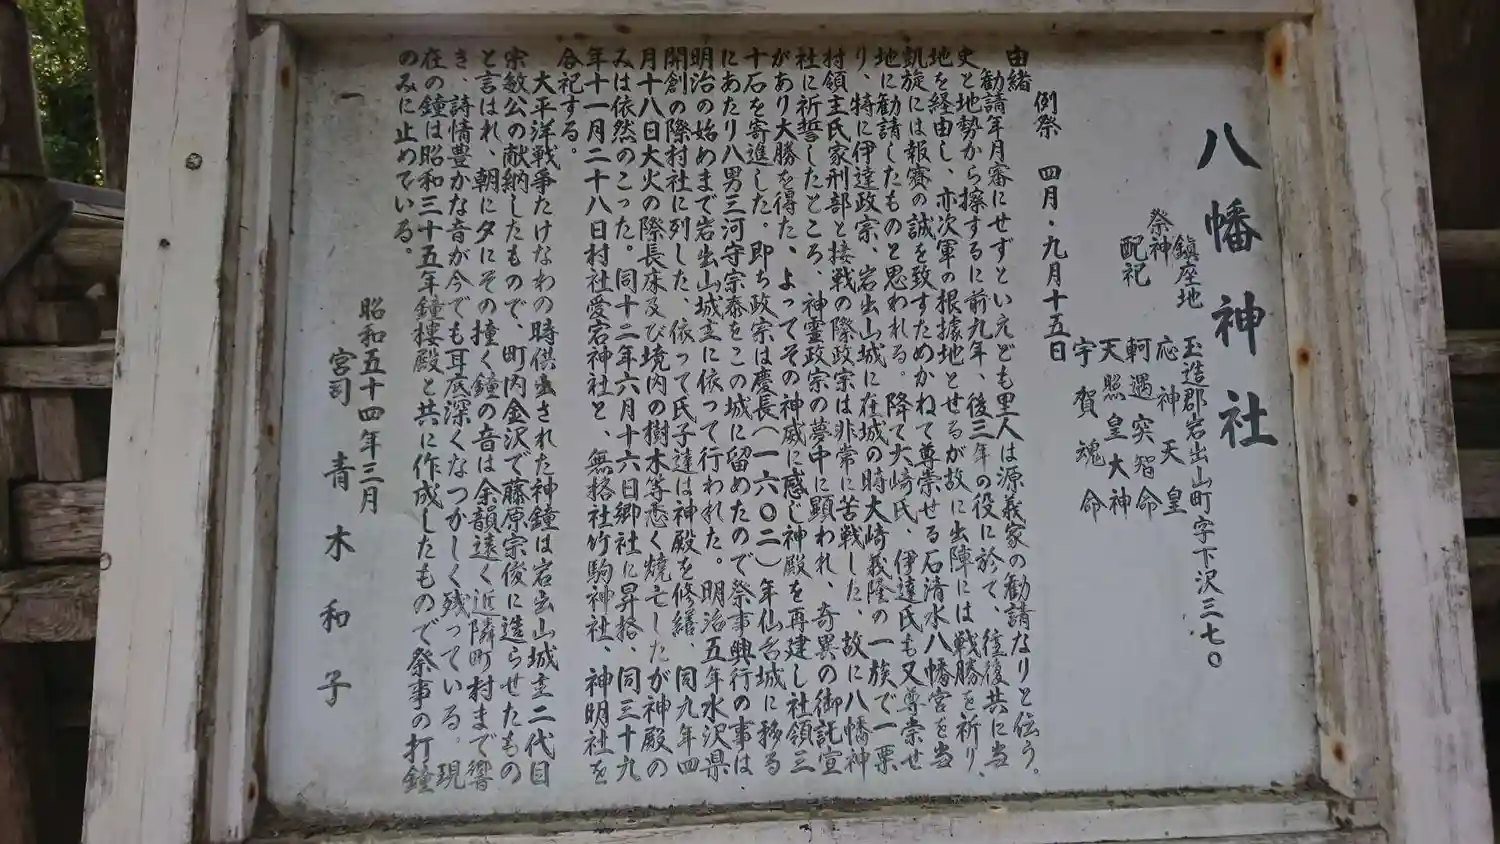 八幡神社
鎮座地 玉造郡岩出山町字下沢三七〇
祭神 応神天皇
配祀 軻遇突智命
天照皇大神
宇賀魂命
例祭 四月・九月十五日
由緒
勧請年月審にせずといえども里人は源義家の勧請なりと伝う。
史と地勢から擦するに前九年、後三年の役に於て、往後共に当
地を経由し、亦次軍の根據地とせるが故に出陣には戦勝を祈り、
凱旋には報賽の誠を致すためかねて尊崇せる石清水八幡宮を当
地に勧請したものと思われる。降て大崎氏、伊達氏も又尊崇せ
り、特に伊達政宗、岩出山城に在城の時大崎義隆の一族で一栗
村領主氏家刑部と接戦の際政宗は非常に苦戦した、故に八幡神
社に祈誓したところ、神霊政宗の夢中に顕われ、奇異の御託宣
があり大勝を得た、よってその神威に感じ神殿を再建し社領三
十石を寄進した。即ち政宗は慶長(一六〇二)年仙台城に移る
にあたり八男三河守宗泰をこの城に留めたので祭事興行の事は
明治の始めまで岩出山城主に依って行われた。明治五年水沢県
開創の際村社に列した、依って氏子達は神殿を修繕、同九年四
月十八日大火の際長床及び境内の樹木等悉く焼亡したが神殿の
みは依然のこった。同十二年六月十六日郷社に昇格、同三十九
年十一月二十八日村社愛宕神社と、無格社竹駒神社、神明社を
合祀する。
大平洋戦争たけなわの時供出された神鐘は岩出山城主二代目
宗敏公の献納したもので、町内金沢で藤原宗俊に造らせたもの
と言はれ、朝に夕にその撞く鐘の音は余韻遠く近隣町村まで響
き、詩情豊かな音が今でも耳底深くなつかしく残っている。現
在の鐘は昭和三十五年鐘樓殿と共に作成したもので祭事の打鐘
のみに止めている。
昭和五十四年三月
宮司 青木和子